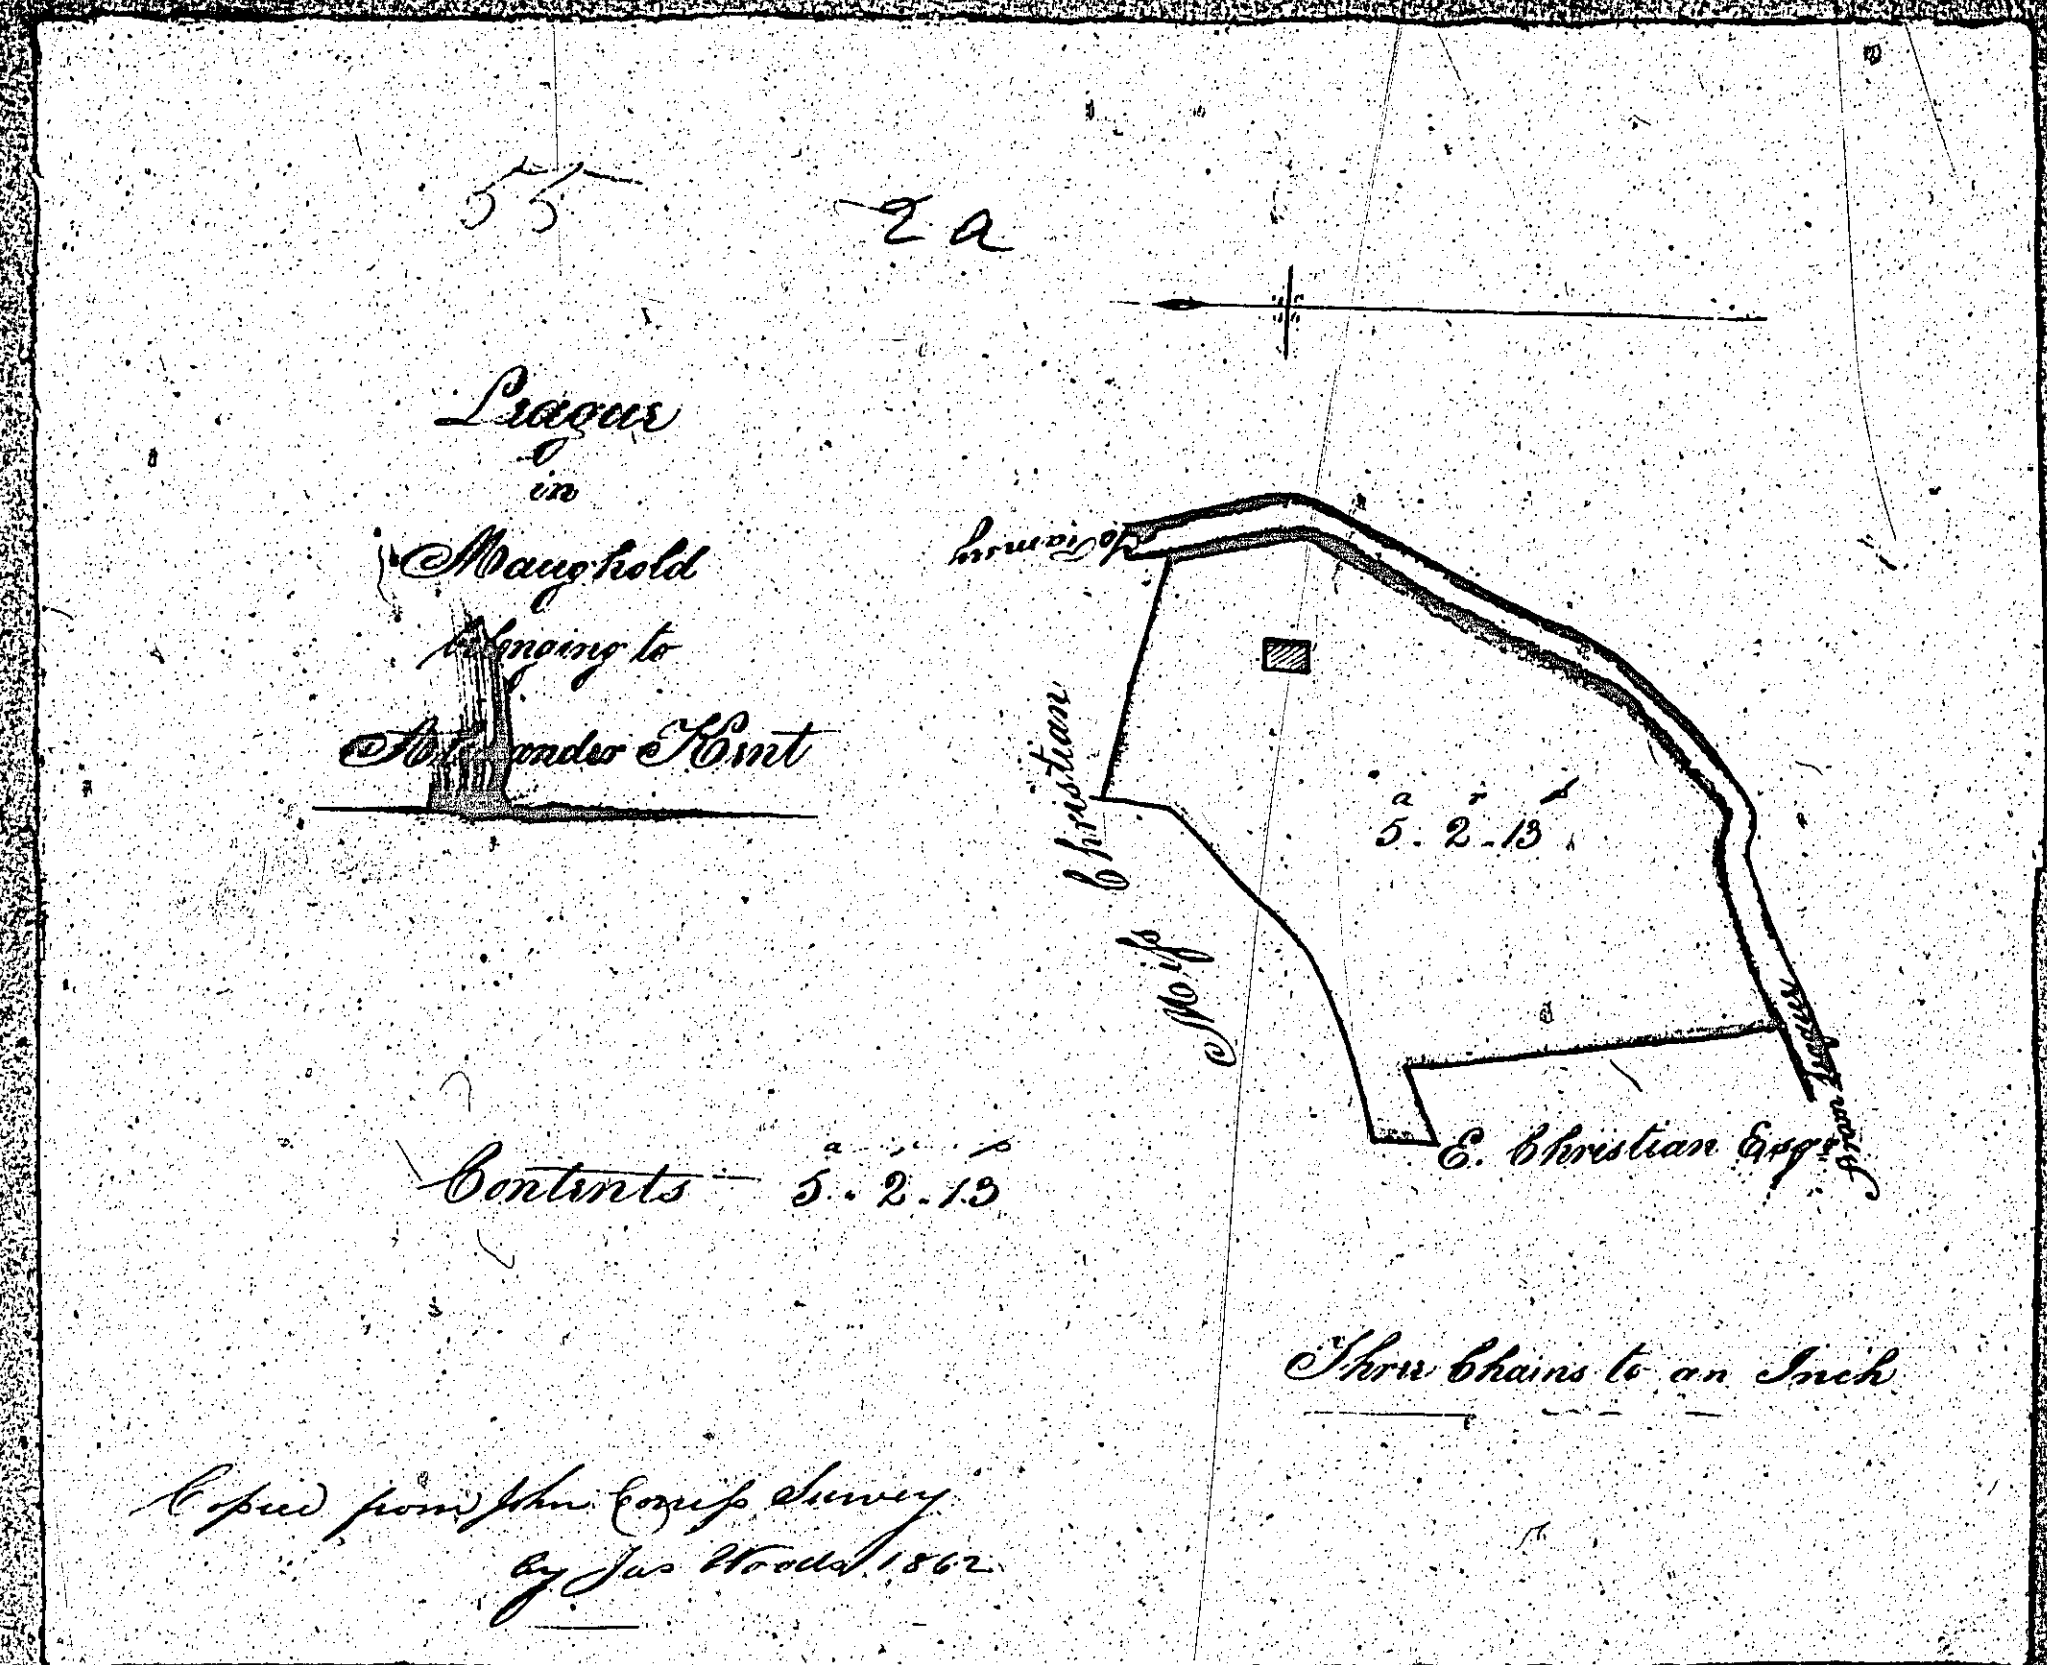 55
2 a
League
in
Maughold
belonging to
Alexander Kent
To Ramsey
Miss Christian
a r p
5 . 2 . 13
From Laxey
E. Christian Esqr.
Contents — a r p
5 . 2 . 13
Three Chains to an Inch
Copied from John Survey
by Jas Woods 1862